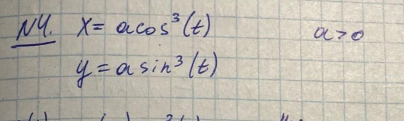 N4. x = a cos³(t) a>0
y = a sin³(t)